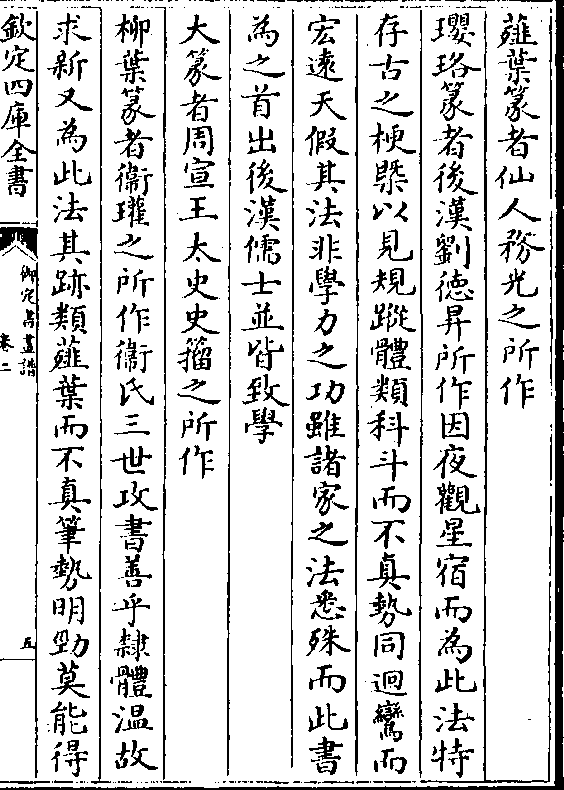 薤葉篆者仙人務光之所作
瓔珞篆者後漢劉德昇所作因夜觀星宿而為此法特
存古之梗槩以見規蹤體類科斗而不真勢同迴鸞而
宏遠天假其法非學力之功雖諸家之法悉殊而此書
為之首出後漢儒士並皆致學
大篆者周宣王太史史籀之所作
柳葉篆者衞瓘之所作衞氏三世攻書善乎隸體溫故
求新又為此法其跡類薤葉而不真筆勢明勁莫能得
欽定四庫全書
御定書畫譜
卷二
五